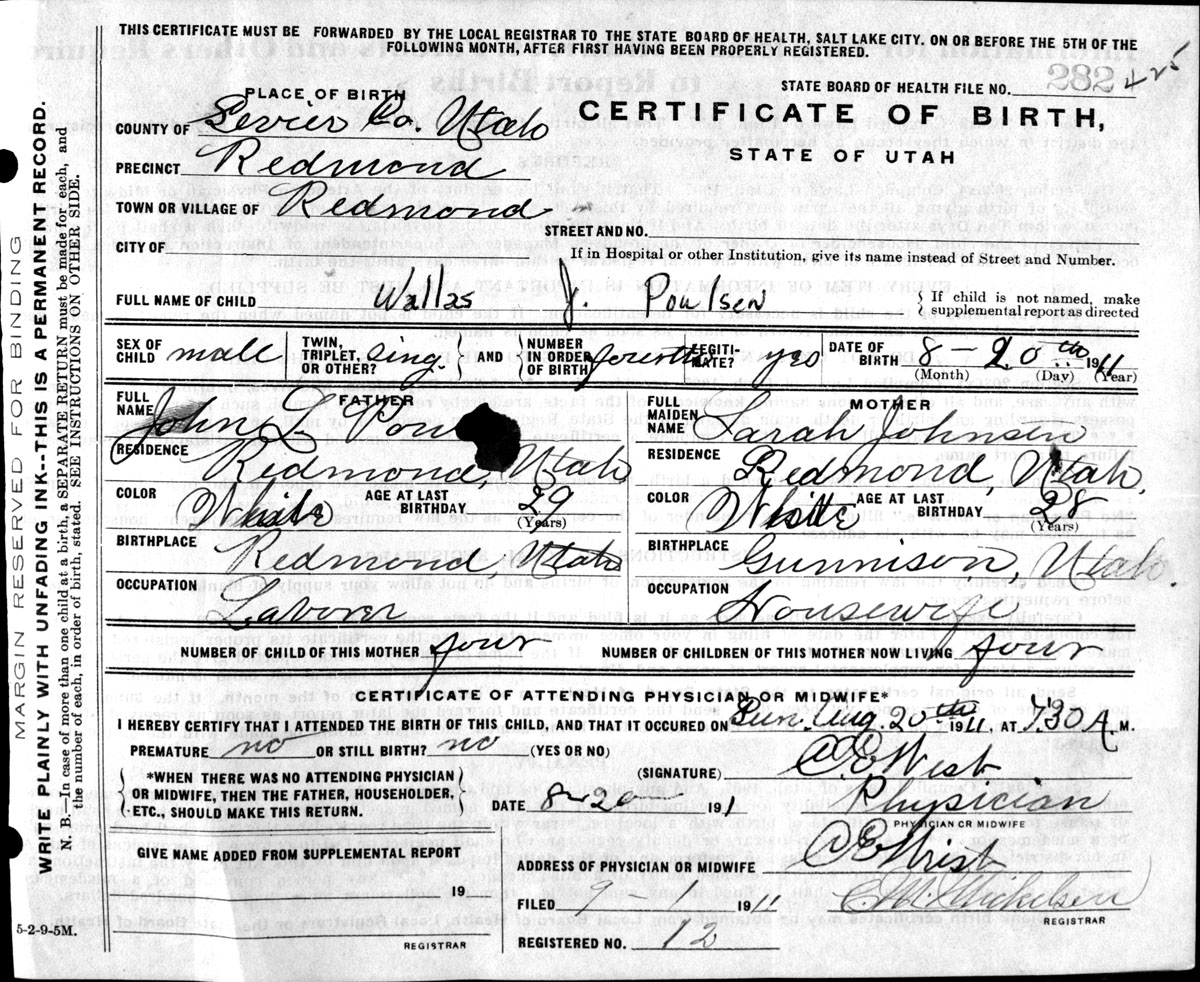 THIS CERTIFICATE MUST BE FORWARDED BY THE LOCAL REGISTRAR TO THE STATE BOARD OF HEALTH, SALT LAKE CITY, ON OR BEFORE THE 5TH OF THE
FOLLOWING MONTH, AFTER FIRST HAVING BEEN PROPERLY REGISTERED.
STATE BOARD OF HEALTH FILE NO. 282 425
PLACE OF BIRTH
CERTIFICATE OF BIRTH,
STATE OF UTAH
COUNTY OF Sevier Co. Utah
PRECINCT Redmond
TOWN OR VILLAGE OF Redmond
STREET AND NO.
CITY OF
If in Hospital or other Institution, give its name instead of Street and Number.
FULL NAME OF CHILD Wallas J. Poulsen { If child is not named, make
supplemental report as directed
SEX OF CHILD male TWIN, TRIPLET, OR OTHER? sing. AND NUMBER IN ORDER OF BIRTH fourth LEGITI-MATE? yes DATE OF BIRTH 8-20th 1911
(Month) (Day) (Year)
FATHER
FULL NAME John L Pou
RESIDENCE Redmond, Utah
COLOR White AGE AT LAST BIRTHDAY 29
(Years)
BIRTHPLACE Redmond, Utah
OCCUPATION Laborer
MOTHER
FULL MAIDEN NAME Sarah Johnsen
RESIDENCE Redmond, Utah.
COLOR White AGE AT LAST BIRTHDAY 28
(Years)
BIRTHPLACE Gunnison, Utah.
OCCUPATION Housewife
NUMBER OF CHILD OF THIS MOTHER four NUMBER OF CHILDREN OF THIS MOTHER NOW LIVING four
CERTIFICATE OF ATTENDING PHYSICIAN OR MIDWIFE*
I HEREBY CERTIFY THAT I ATTENDED THE BIRTH OF THIS CHILD, AND THAT IT OCCURED ON Sun. Aug. 20th 1911, AT 7:30 A M.
PREMATURE no OR STILL BIRTH? no (YES OR NO)
*WHEN THERE WAS NO ATTENDING PHYSICIAN
OR MIDWIFE, THEN THE FATHER, HOUSEHOLDER,
ETC., SHOULD MAKE THIS RETURN.
(SIGNATURE)
DATE 8-20 1911 Physician
PHYSICIAN OR MIDWIFE
GIVE NAME ADDED FROM SUPPLEMENTAL REPORT
19
REGISTRAR
ADDRESS OF PHYSICIAN OR MIDWIFE
FILED 9-1 1911
REGISTRAR
REGISTERED NO. 12
5-2-9-5M.
MARGIN RESERVED FOR BINDING
WRITE PLAINLY WITH UNFADING INK--THIS IS A PERMANENT RECORD.
N. B.—In case of more than one child at a birth, a SEPARATE RETURN must be made for each, and
the number of each, in order of birth, stated. SEE INSTRUCTIONS ON OTHER SIDE.